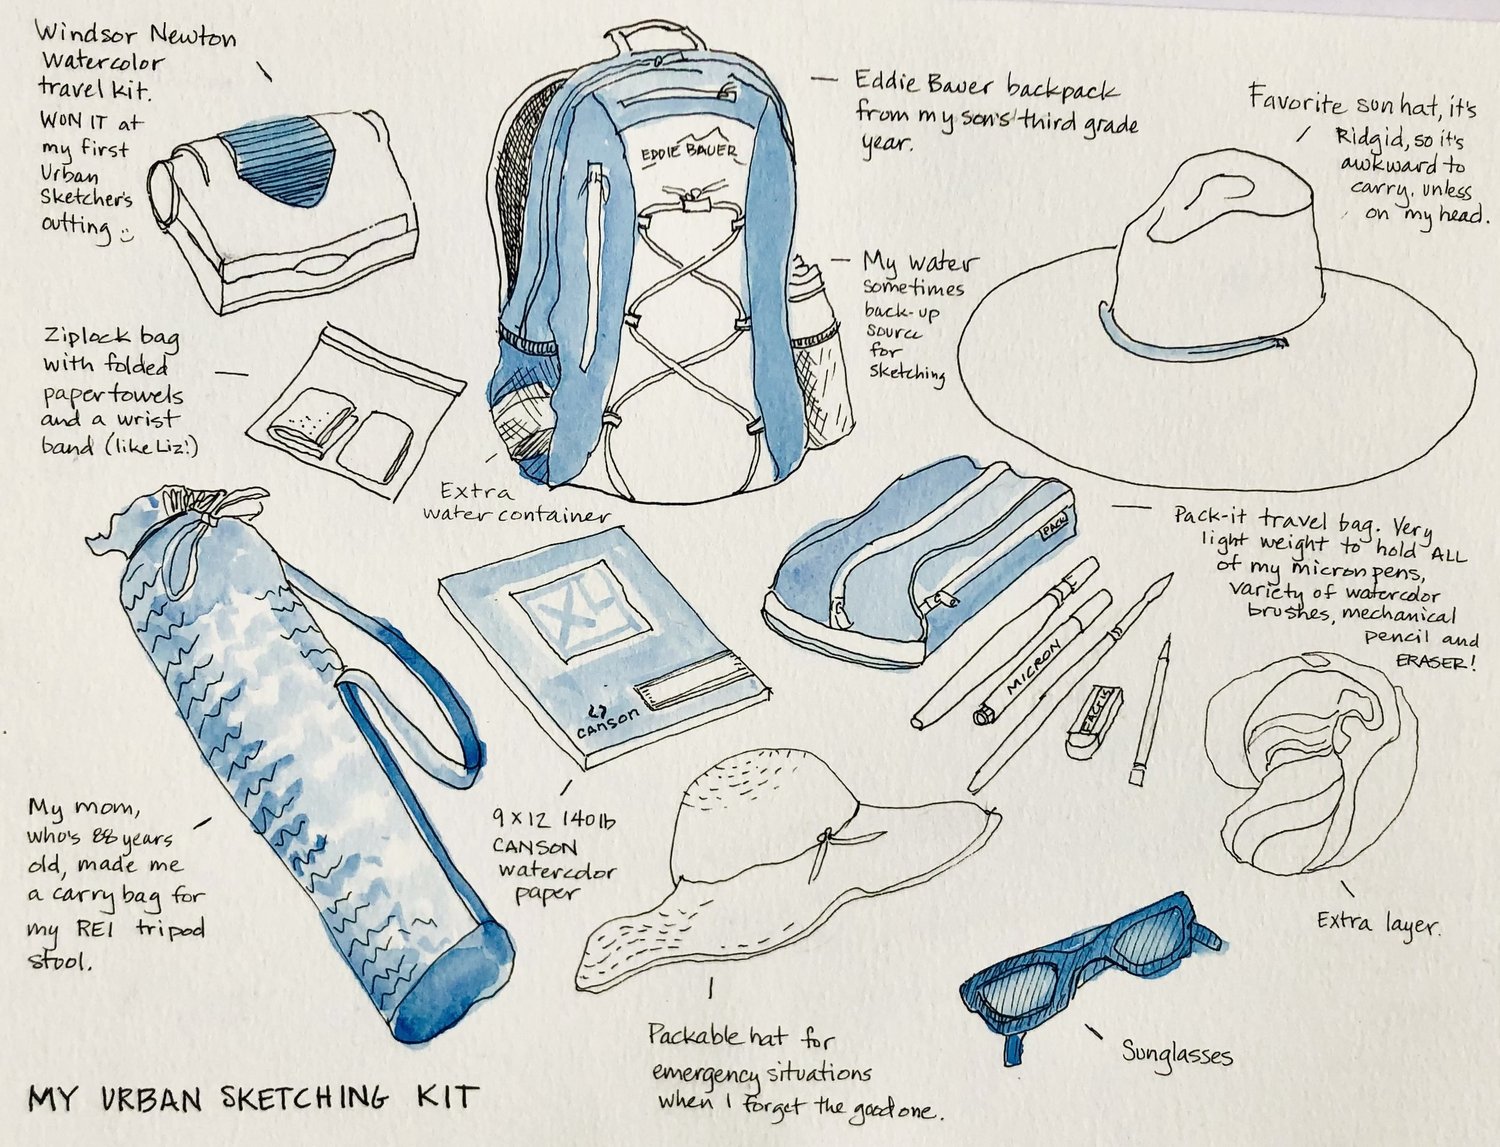 Windsor Newton
Watercolor
travel kit.
WON IT at
my first
Urban
Sketcher's
outting
EDDIE BAUER
Eddie Bauer backpack
from my son's third grade
year.
Favorite sun hat, it's
Ridgid, so it's
awkward to
carry, unless
on my head.
My water
sometimes
back-up
source
for
sketching
Ziplock bag
with folded
paper towels
and a wrist
band (like Liz!)
Extra
water container
Pack-it travel bag. Very
light weight to hold ALL
of my micron pens,
variety of watercolor
brushes, mechanical
pencil and
ERASER!
PACK
XL
CANSON
MICRON
FACTIS
My mom,
who's 88 years
old, made me
a carry bag for
my REI tripod
stool.
9 x 12 140 lb
CANSON
watercolor
paper
Extra layer.
Packable hat for
emergency situations
when I forget the good one.
Sunglasses
MY URBAN SKETCHING KIT